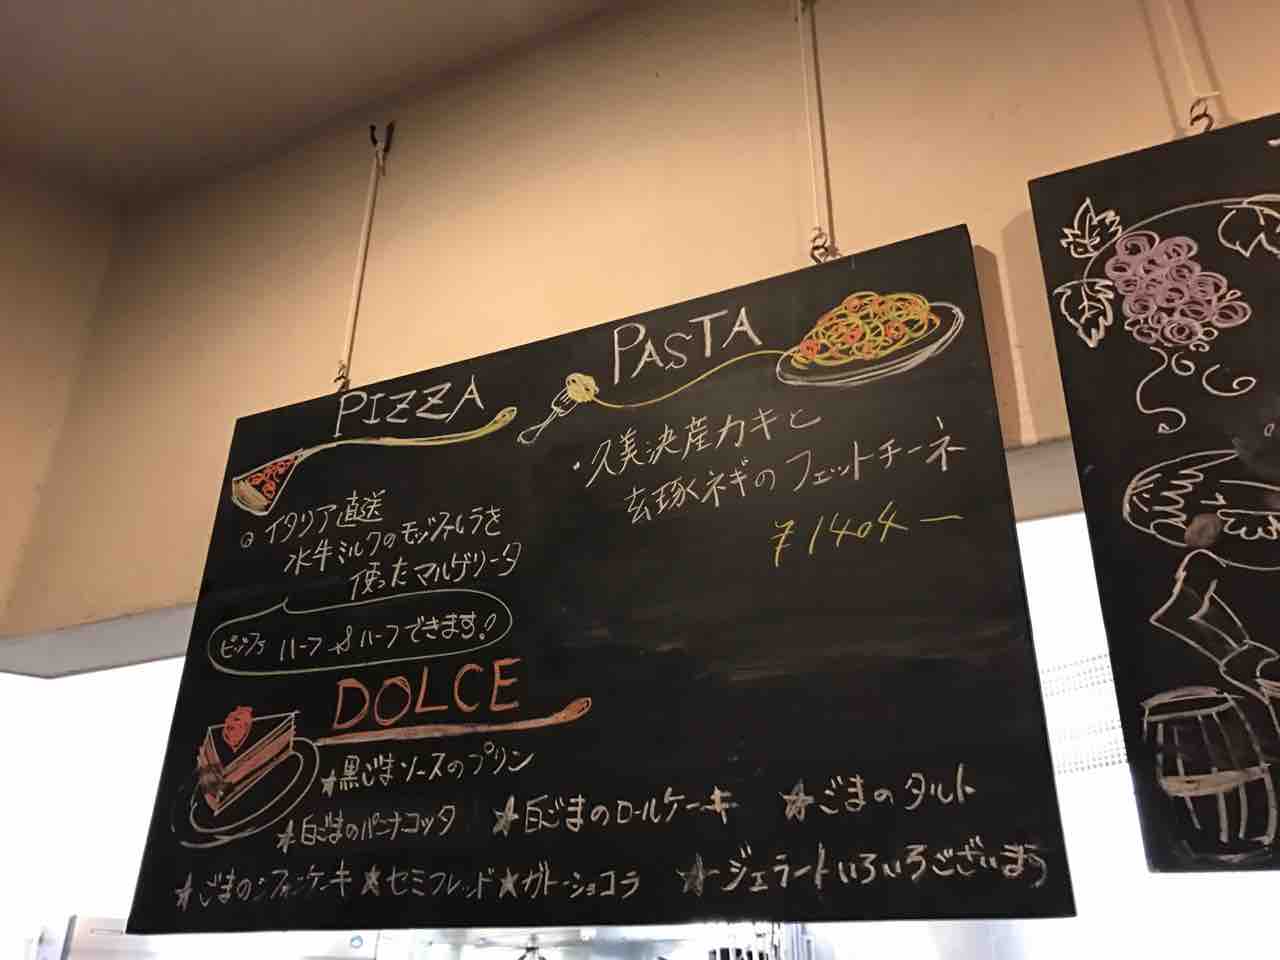 PIZZA
イタリア直送
水牛ミルクのモッツァレラを
使ったマルゲリータ
ピッツァ ハーフ&ハーフできます!
PASTA
・久美浜産カキと
玄琢ネギのフェットチーネ
¥1404ー
DOLCE
★黒ごまソースのプリン
★白ごまのパンナコッタ ★白ごまのロールケーキ ★ごまのタルト
★ごまのシフォンケーキ ★セミフレッド ★ガトーショコラ ★ジェラートいろいろございます